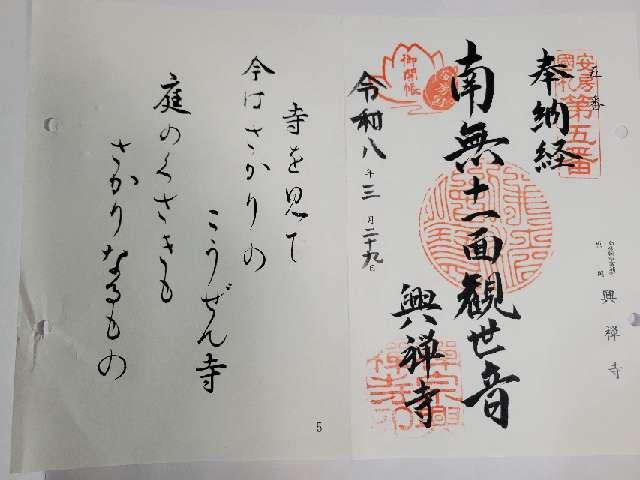 五番
奉納経
安房
國札
第五番
南無十一面観世音
興禅寺
御開帳
令和八年三月二十九日
興禅寺
寺を見て
今はさかりの
こうぜん寺
庭のくさきも
さかりなるもの
5